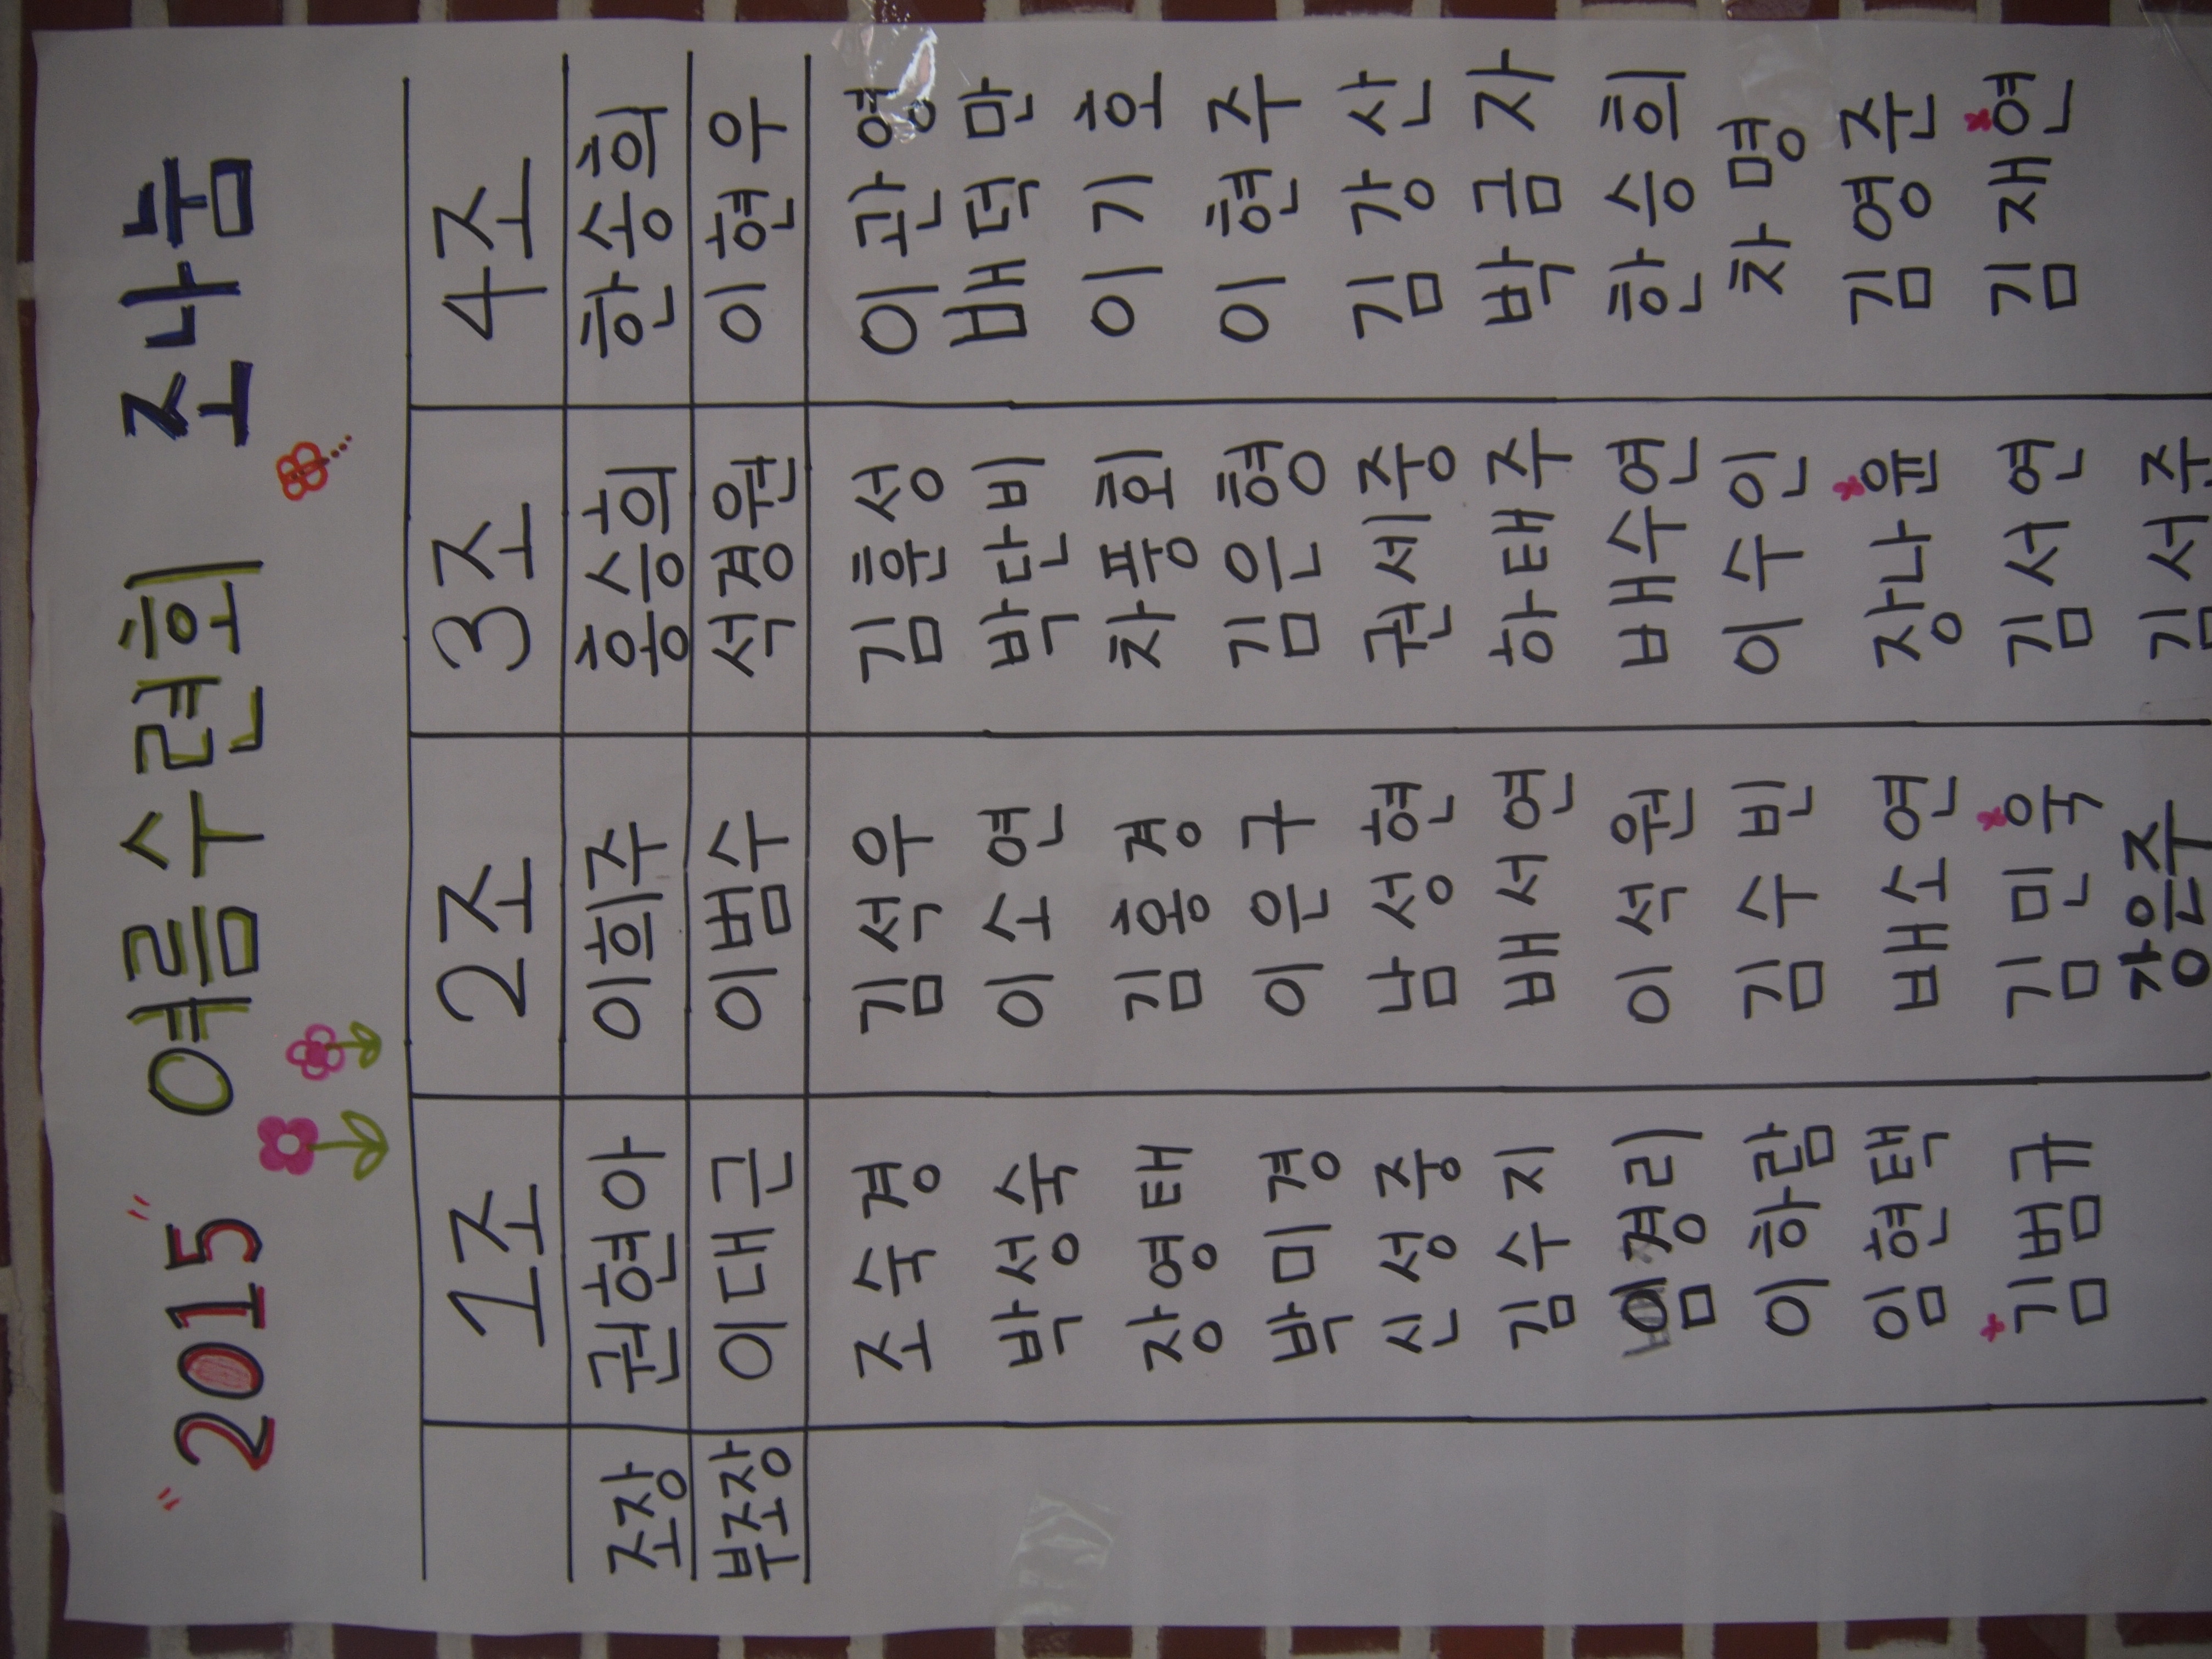 "2015" 여름수련회 조나눔
1조 2조 3조 4조
조장 권현아 이희주 홍승희 한송희
부조장 이대근 이범수 석경원 이현우
조숙경 김석우 김훈성 이관영
박성숙 이소연 박단비 배덕만
장영태 김홍경 차풍회 이기호
박미경 이은구 김은형 이현주
신성중 남성현 권세중 김강산
김수지 배서연 하태주 박금자
임경리 이석원 배수연 한승희
이하람 김수빈 이수인 차명
임현택 배소연 장나윤 김영준
김범규 김민욱 김서연 김재연
강은주 김서주